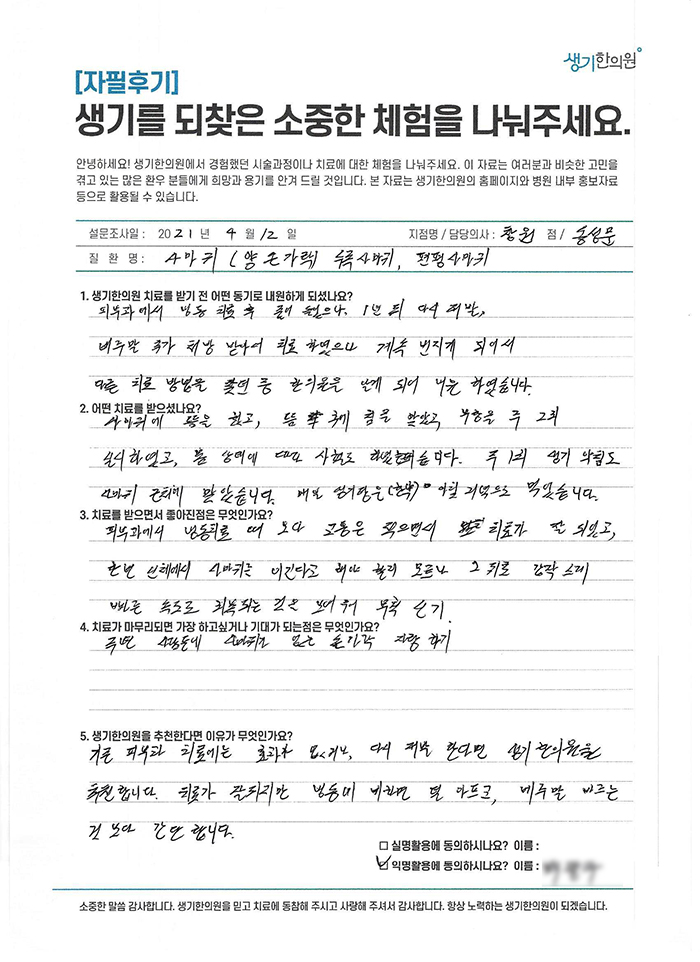 생기한의원
[자필후기]
생기를 되찾은 소중한 체험을 나눠주세요.
안녕하세요! 생기한의원에서 경험했던 시술과정이나 치료에 대한 체험을 나눠주세요. 이 자료는 여러분과 비슷한 고민을
겪고 있는 많은 환우 분들에게 희망과 용기를 안겨 드릴 것입니다. 본 자료는 생기한의원의 홈페이지와 병원 내부 홍보자료
등으로 활용될 수 있습니다.
설문조사일 : 2021 년 4 월 12 일 지점명 / 담당의사 : 창원 점 / 송성문
질 환 명 : 사마귀 (양 손가락) 수족사마귀, 편평사마귀
1. 생기한의원 치료를 받기 전 어떤 동기로 내원하게 되셨나요?
피부과에서 냉동 치료 후 1년 뒤 다시 재발,
베루말 추가 처방 받아서 치료 하였으나 계속 번지게 되어서
다른 치료 방법을 찾던 중 한의원을 알게 되어 내원 하였습니다.
2. 어떤 치료를 받으셨나요?
사마귀에 뜸을 뜨고, 뜸 침을 맞았고 부항을 주 2회
실시하였고, 주 1회 생기 약침도
사마귀 근처에 맞았습니다. 매일 (한약) 아침 저녁으로 먹었습니다.
3. 치료를 받으면서 좋아진점은 무엇인가요?
피부과에서 냉동치료 때 보다 고통은 적으면서 치료가 잘 되었고,
사마귀를 이긴다고 해야 할지 모르나 그 뒤로 갑작스레
빠른 속도로 회복되는 것을 보여 무척 신기.
4. 치료가 마무리되면 가장 하고싶거나 기대가 되는점은 무엇인가요?
주변 사람들에 사마귀가 없는 손가락 자랑 하기
5. 생기한의원을 추천한다면 이유가 무엇인가요?
기존 피부과 치료에는 효과가 없거나, 다시 재발 한다면 생기한의원을
추천합니다. 치료가 잘되지만 냉동에 비하면 덜 아프고, 베루말 바르는
것 보다 간단 합니다.
□ 실명활용에 동의하시나요? 이름 :
☑ 익명활용에 동의하시나요? 이름 :
소중한 말씀 감사합니다. 생기한의원을 믿고 치료에 동참해 주시고 사랑해 주셔서 감사합니다. 항상 노력하는 생기한의원이 되겠습니다.